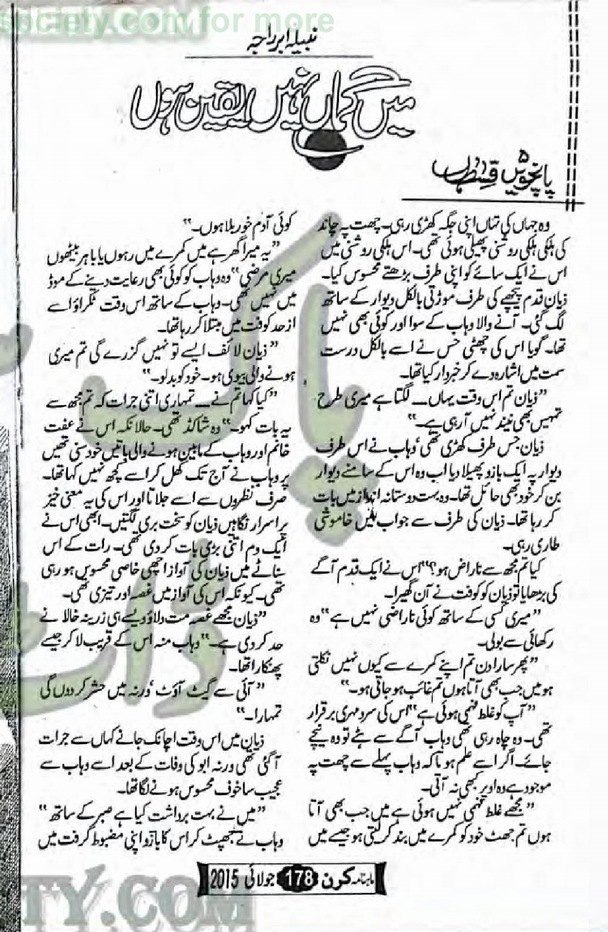 society.com for more
نبیلہ ابر راجہ
میں گماں نہیں یقین ہوں
پانچویں قسط
وہ جہاں کی تہاں اپنی جگہ کھڑی رہی۔ چھت پہ چاند
کی ہلکی ہلکی روشنی پھیلی ہوئی تھی۔ اس ہلکی روشنی میں
اس نے ایک سائے کو اپنی طرف بڑھتے محسوس کیا۔
ذیان قدم پیچھے کی طرف موڑتی بالکل دیوار کے ساتھ
لگ گئی۔ آنے والا وہاب کے سوا اور کوئی بھی نہیں
تھا۔ گویا اس کی چھٹی حس نے اسے بالکل درست
سمت میں اشارہ دے کر خبردار کیا تھا۔
”ذیان تم اس وقت یہاں۔۔۔ لگتا ہے میری طرح
تمہیں بھی نیند نہیں آ رہی ہے۔“
ذیان جس طرف کھڑی تھی ’وہاب نے اس طرف
دیوار پہ ایک بازو پھیلا دیا اب وہ اس کے سامنے دیوار
بن کر خود بھی حائل تھا۔ وہ بہت دوستانہ انداز میں بات
کر رہا تھا۔ ذیان کی طرف سے جواب میں خاموشی
طاری رہی۔
کیا تم مجھ سے ناراض ہو؟“ اس نے ایک قدم آگے
کی بڑھایا تو ذیان کو کوفت نے آن گھیرا۔
”میری کسی کے ساتھ کوئی ناراضی نہیں ہے“ وہ
رکھائی سے بولی۔
”پھر سارا دن تم اپنے کمرے سے کیوں نہیں نکلتی
ہو میں جب بھی آتا ہوں تم غائب ہو جاتی ہو۔“
”آپ کو غلط فہمی ہوئی ہے“ اس کی سرد مہری برقرار
تھی۔ وہ چاہ رہی تھی وہاب آگے سے ہٹے تو وہ نیچے
جائے۔ اگر اسے علم ہوتا کہ وہاب پہلے سے چھت پہ
موجود ہے وہ اوپر کبھی نہ آتی۔
”مجھے غلط فہمی نہیں ہوئی ہے میں جب بھی آتا
ہوں تم جھٹ خود کو کمرے میں بند کر لیتی ہو جیسے میں
کوئی آدم خور بلا ہوں۔“
”یہ میرا گھر ہے میں کمرے میں رہوں یا باہر بیٹھوں
میری مرضی“ وہ وہاب کو کوئی بھی رعایت دینے کے موڈ
میں نہیں تھی۔ وہاب کے ساتھ اس وقت ٹکراؤ اسے
ازحد کوفت میں مبتلا کر رہا تھا۔
”ذیان لائف ایسے تو نہیں گزرے گی تم میری
ہونے والی بیوی ہو۔ خود کو بدلو۔“
”کیا کہا تم نے۔۔۔ تمہاری اتنی جرات کہ تم مجھ سے
یہ بات کہو۔“ وہ شاکڈ تھی۔ حالانکہ اس نے عفت
خانم اور وہاب کے مابین ہونے والی باتیں خود سنی تھیں
پر وہاب نے آج تک کھل کر اسے کچھ نہیں کہا تھا۔
صرف نظروں سے اسے جلاتا اور اس کی یہ معنی خیز
پراسرار نگاہیں ذیان کو سخت بری لگتیں۔ ابھی اس نے
ایک دم اتنی بڑی بات کر دی تھی۔ رات کے اس
سناٹے میں ذیان کی آواز اچھی خاصی محسوس ہو رہی
تھی۔ کیونکہ اس کی آواز میں غصہ اور تیزی تھی۔
”ذیان مجھے غصہ مت دلاؤ ویسے ہی زرینہ خالا نے
حد کر دی ہے۔“ وہاب منہ اس کے قریب لا کر جیسے
پھنکارا تھا۔
”آئی سے گیٹ آؤٹ‘ ورنہ میں حشر کر دوں گی
تمہارا۔“
ذیان میں اس وقت اچانک جانے کہاں سے جرات
آ گئی تھی ورنہ ابو کی وفات کے بعد اسے وہاب سے
عجیب سا خوف محسوس ہونے لگا تھا۔
”میں نے بہت برداشت کیا ہے صبر کے ساتھ“
وہاب نے جھپٹ کر اس کا بازو اپنی مضبوط گرفت میں
ماہنامہ کرن 178 جولائی 2015